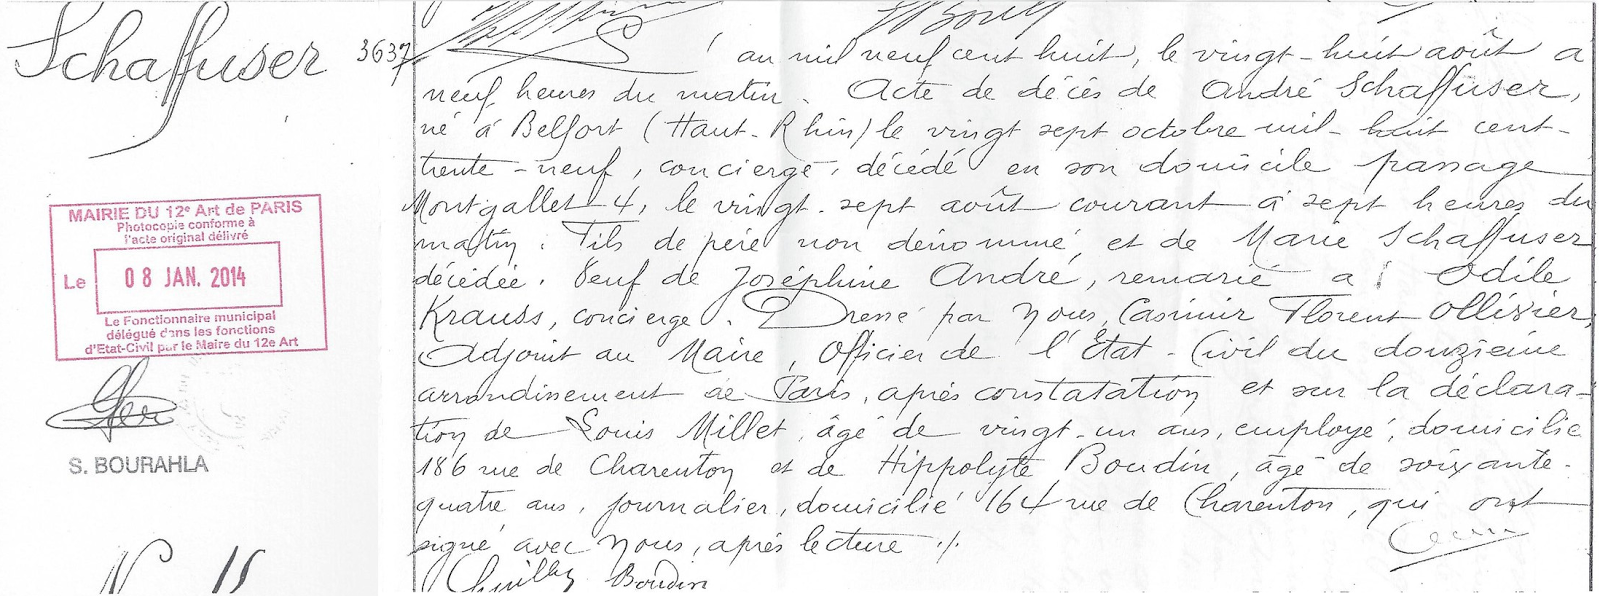 Schaffuser
3637
MAIRIE DU 12e Art de PARIS
Photocopie conforme à
l'acte original délivré
Le 08 JAN. 2014
Le Fonctionnaire municipal
délégué dans les fonctions
d'Etat-Civil par le Maire du 12e Art
S. BOURAHLA
au mil neuf cent huit, le vingt-huit août a
neuf heures du matin. Acte de décès de André Schaffuser,
né à Belfort (Haut-Rhin) le vingt sept octobre mil-huit cent-
trente-neuf, concierge, décédé en son domicile passage
Montgallet 4, le vingt-sept août courant à sept heures du
matin. Fils de père non dénommé et de Marie Schaffuser
décédée. Veuf de Joséphine André, remarié a Odile
Krauss, concierge. Dressé par Nous, Casimir Florent Ollivier,
Adjoint au Maire, Officier de l'État-Civil du douzième
arrondissement de Paris, après constatation et sur la déclara-
tion de Louis Millet, âgé de vingt-un ans, employé, domicilié
186 rue de Charenton et de Hippolyte Boudin, âgé de soixante-
quatre ans, journalier, domicilié 164 rue de Charenton, qui ont
signé avec Nous, après lecture ./.
Boudin